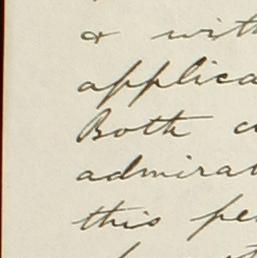 & with
applica
Both c
admirat
this pe